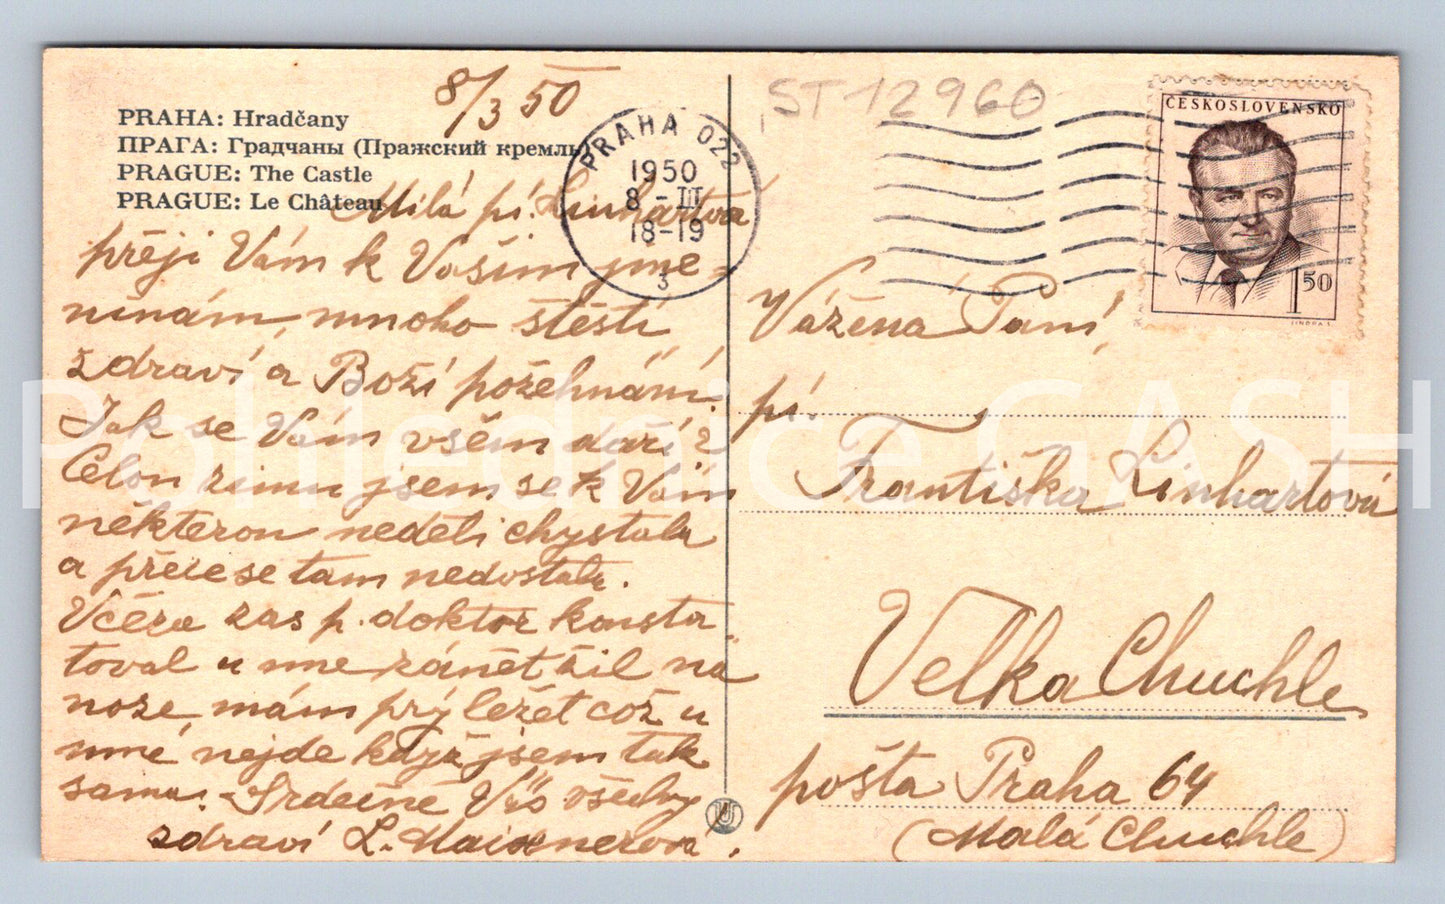 8/3 50
PRAHA: Hradčany
ПРАГА: Градчаны (Пражский кремль)
PRAGUE: The Castle
PRAGUE: Le Château
Milá pí. Linhartová
přeji Vám k Vašim jme-
ninám, mnoho štěstí
zdraví a Boží požehnání.
Jak se Vám všem daří?
Celou zimu jsem se k Vám
některou neděli chystala
a přece se tam nedostala.
Včera zas p. doktor konsta-
toval u mne zánět žil na
noze, mám prý ležet což u
mne nejde když jsem tak
sama. Srdečně Vás všechny
zdraví L. Maixnerová.
PRAHA 022
1950
8 - III
18-19
3
ST 12960
ČESKOSLOVENSKO
1 50
Vážená Paní,
pí.
Františka Linhartová
Velká Chuchle
pošta Praha 64
(Malá Chuchle)
Pohlednice GASH